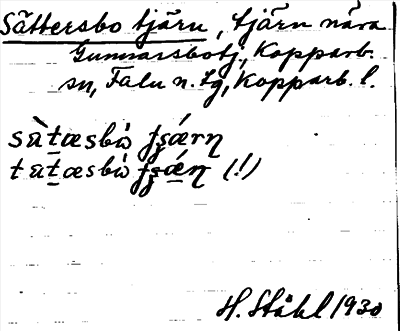 Sättersbo tjärn, tjärn nära
Gunnarsbotj, Kopparb.
sn, Falu n. tg, Kopparb. l.
sàtæsbὼ ʄʂǽrɳ
tàtæsbὼ ʄʂǽɳ (!)
H. Ståhl 1930